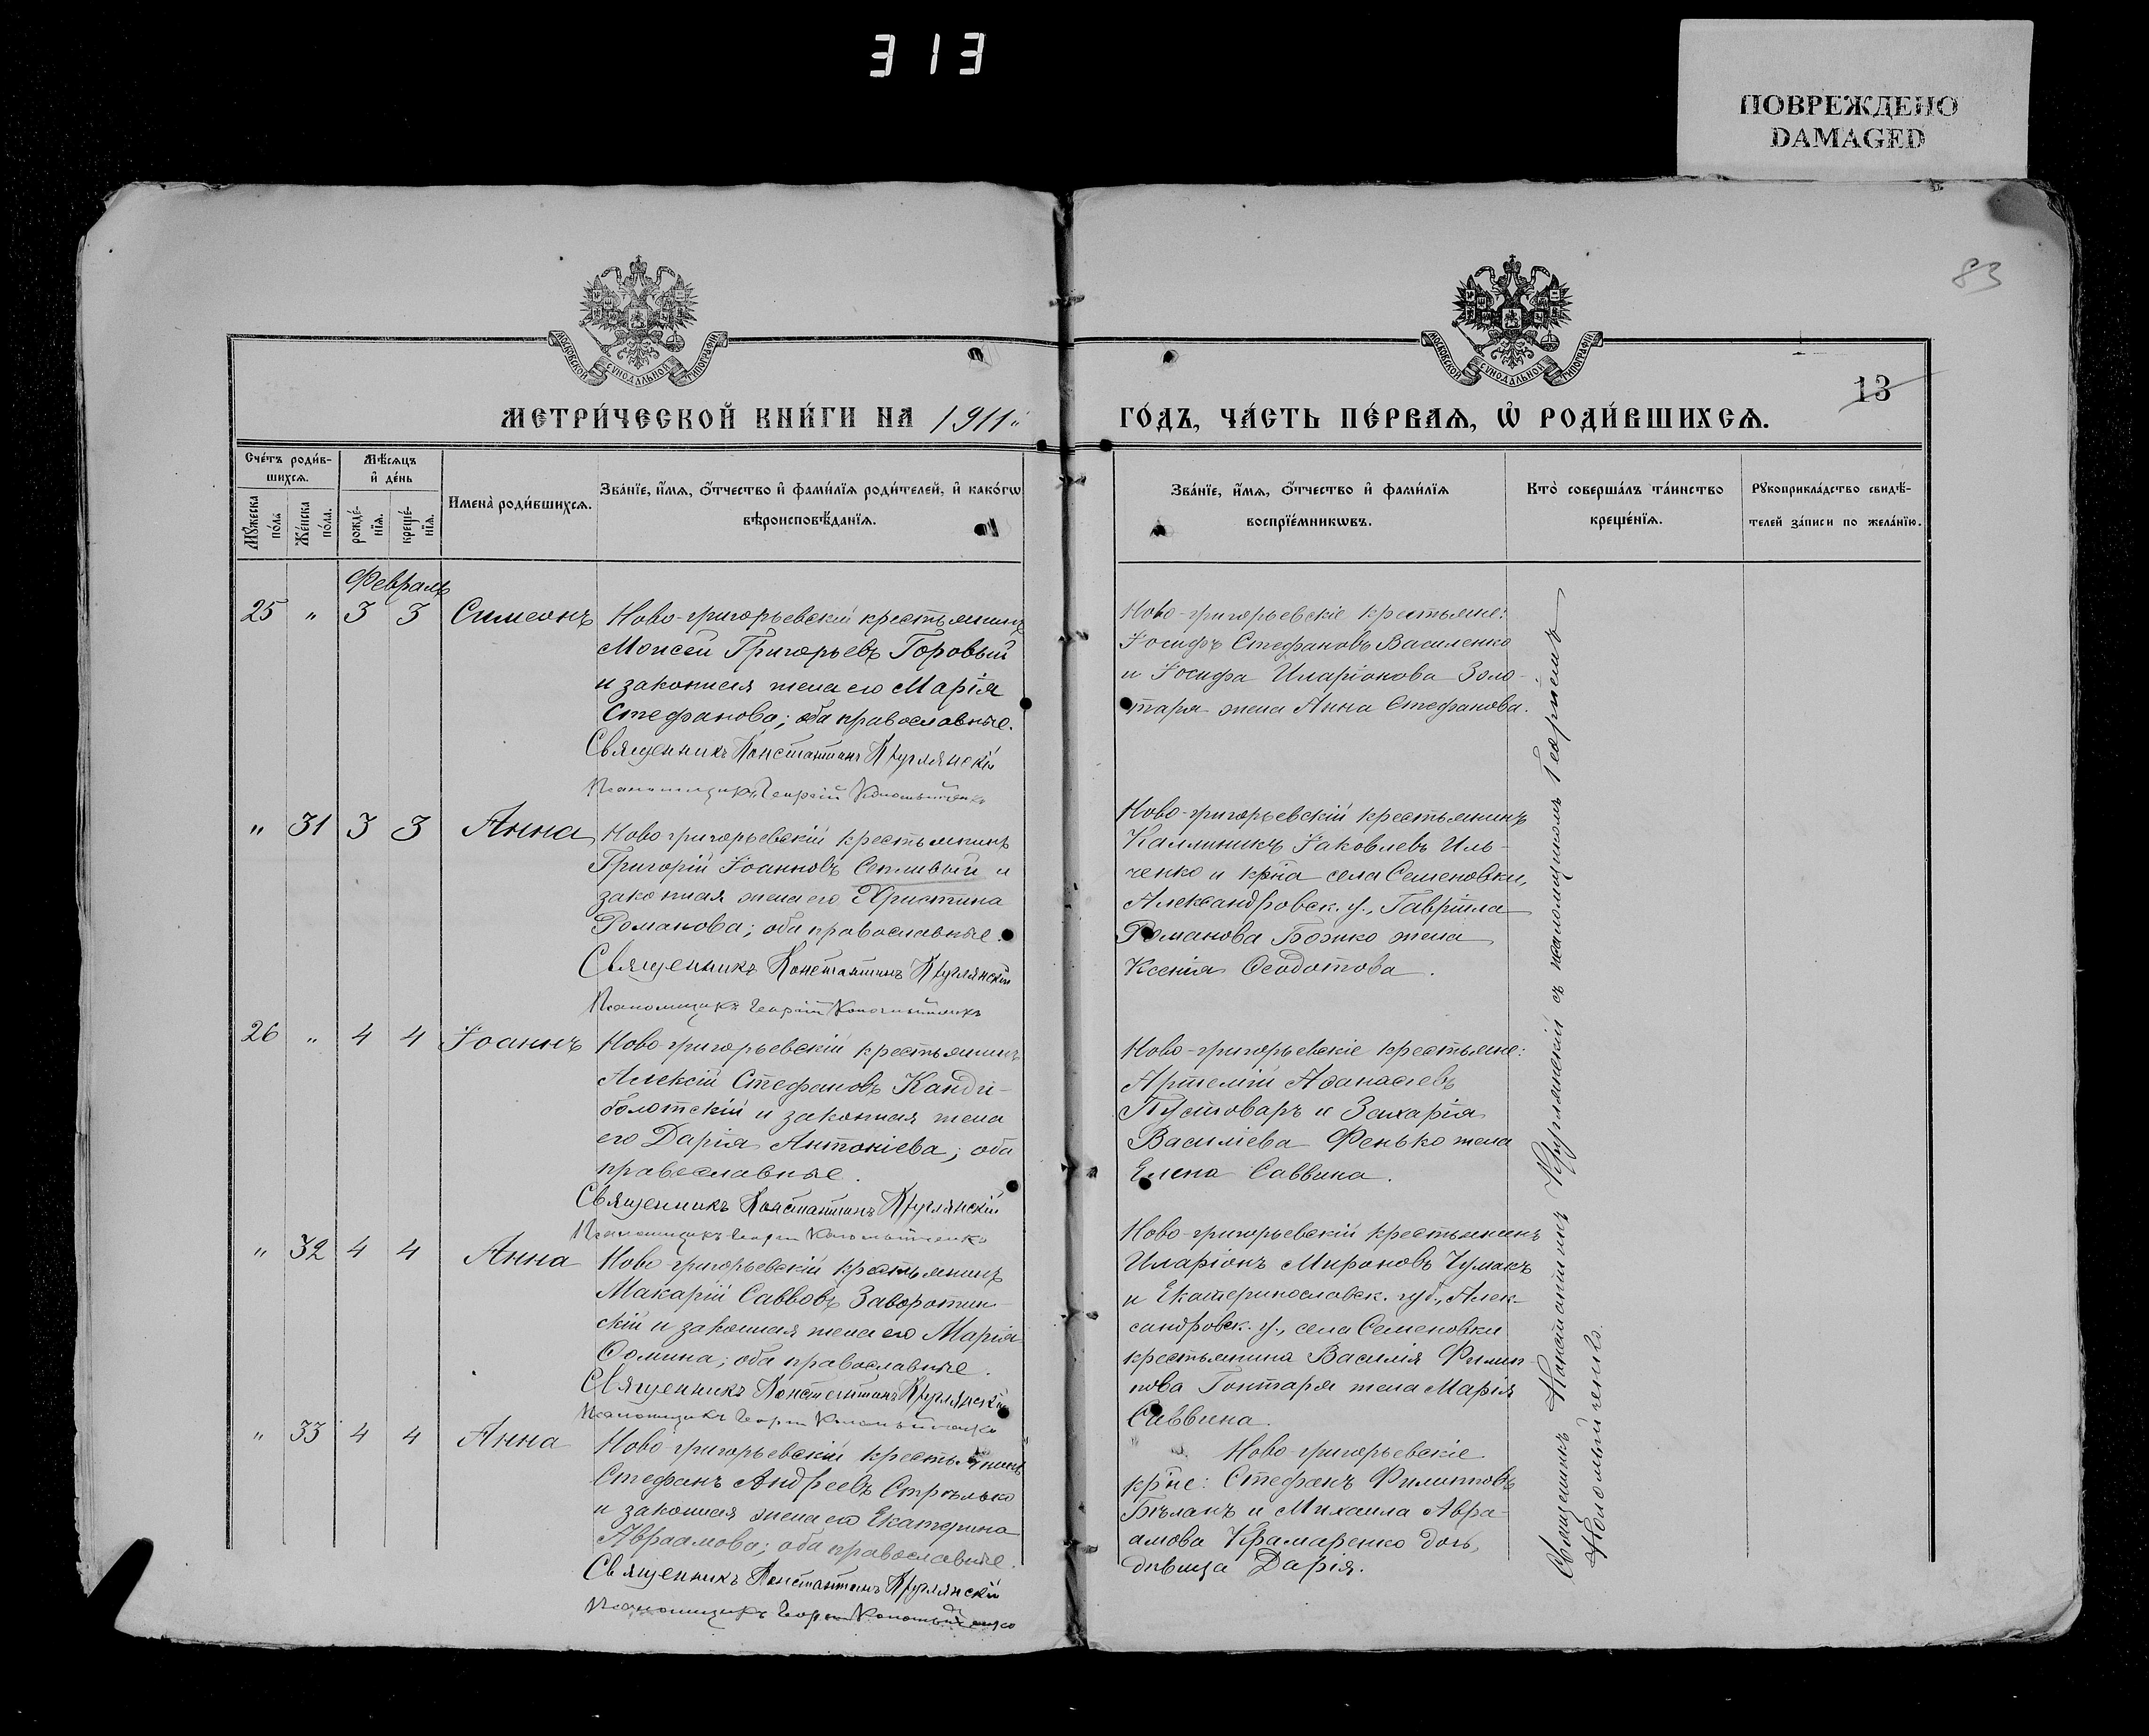 313
ПОВРЕЖДЕНО
DAMAGED
83
МОСКОВСКОЙ СѴНОДАЛЬНОЙ ТИПОГРАФІИ
МОСКОВСКОЙ СѴНОДАЛЬНОЙ ТИПОГРАФІИ
13
МЕТРИ́ЧЕСКОЙ КНИ́ГИ НА 1911
ГО́ДЪ, ЧА́СТЬ ПЕ́РВАѦ, Ѡ҆ РОДИ́ВШИХСѦ.
Сче́тъ роди́в-
шихсѧ.
Мꙋжеска по́ла.
Же́нска по́ла.
Мѣ́сѧцъ
и҆ де́нь
рожде́-
нїѧ.
креще́-
нїѧ.
Имена̀ роди́вшихсѧ.
Зва́нїе, и҆́мѧ, ѻ҆́тчество и҆ фами́лїѧ роди́телей, и҆ како́гѡ
вѣроисповѣ́данїѧ.
Зва́нїе, и҆́мѧ, ѻ҆́тчество и҆ фами́лїѧ
воспрїе́мникѡвъ.
Кто̀ соверша́лъ та́инство
креще́нїѧ.
Рꙋкоприкла́дство свидѣ́-
телей за́писи по жела́нїю.
Февраль
25 " 3 3 Симеонъ
Ново-григорьевскій крестьянинъ
Моисей Григорьевъ Горовый
и законная жена его Марія
Стефанова; оба православные.
Священникъ Константинъ Круглянскій
Псаломщикъ Георгій Коломыйченко
Ново-григорьевскіе крестьяне:
Іосифъ Стефановъ Василенко
и Іосифа Иларіонова Золо-
таря жена Анна Стефанова.
" 31 3 3 Анна
Ново григорьевскій крестьянинъ
Григорій Іоанновъ Сотливый и
законная жена его Христина
Романова; оба православные.
Священникъ Константинъ Круглянскій
Псаломщикъ Георгій Коломыйченко
Ново-григорьевскій крестьянинъ
Каллиникъ Іаковлевъ Иль-
ченко и кр̃на села Семеновки,
Александровск. у., Гавріила
Романова Божко жена
Ксенія Ѳеодотова.
26 " 4 4 Іоаннъ
Ново-григорьевскій крестьянинъ
Алексій Стефановъ Канди-
болотскій и законная жена
его Дарія Антоніева; оба
православные.
Священникъ Константинъ Круглянскій
Псаломщикъ Георгій Коломыйченко
Ново-григорьевскіе крестьяне:
Артемій Аѳанасіевъ
Пустоваръ и Захарія
Василіева Фенько жена
Елена Саввина.
" 32 4 4 Анна
Ново григорьевскій крестьянинъ
Макарій Саввовъ Заворотин-
скій и законная жена его Марія
Ѳомина; оба православные.
Священникъ Константинъ Круглянскій
Псаломщикъ Георгій Коломыйченко
Ново-григорьевскій крестьянинъ
Иларіонъ Мироновъ Чумакъ
и Екатеринославск. губ., Алек-
сандровск. у., села Семеновки
крестьянина Василія Филип-
пова Гонтаря жена Марія
Саввина.
" 33 4 4 Анна
Ново григорьевскій крестьянинъ
Стефанъ Андреевъ Стрѣлько
и законная жена его Екатерина
Авраамова; оба православные.
Священникъ Константинъ Круглянскій
Псаломщикъ Георгій Коломыйченко
Ново-григорьевскіе
кр̃не: Стефанъ Филипповъ
Бѣланъ и Михаила Авра-
амова Крамаренко дочь,
дѣвица Дарія.
Священникъ Константинъ Круглянскій съ псаломщикомъ Георгіемъ
Коломыйченко.